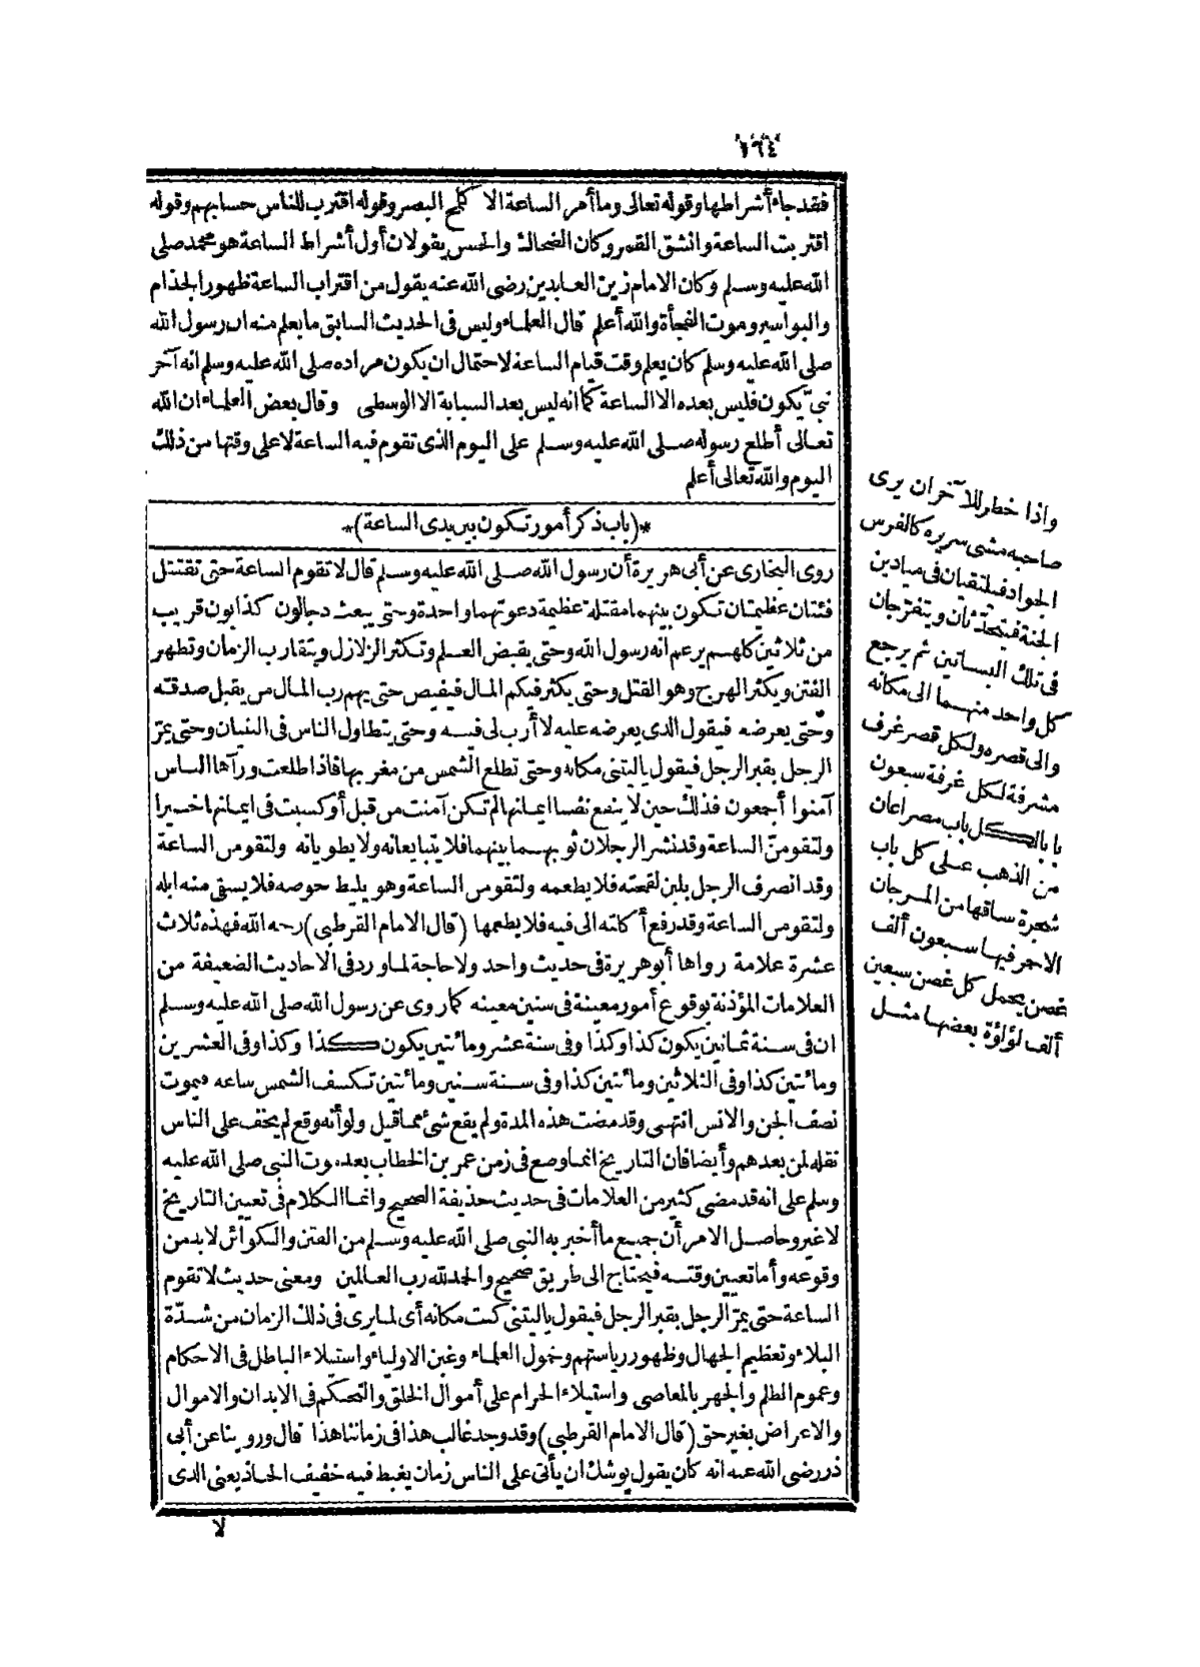 ١٦٤
فقد جاء أشراطها وقوله تعالى وما أمر الساعة الا كلمح البصر وقوله اقترب للناس حسابهم وقوله
اقتربت الساعة وانشق القمر وكان الضحاك والحسن يقولان أول أشراط الساعة هو محمد صلى
الله عليه وسلم وكان الامام زين العابدين رضى الله عنه يقول من اقتراب الساعة ظهور الجذام
والبواسير وموت الفجأة والله أعلم قال العلماء وليس فى الحديث السابق ما يعلم منه ان رسول الله
صلى الله عليه وسلم كان يعلم وقت قيام الساعة لاحتمال ان يكون مراده صلى الله عليه وسلم انه آخر
نبىّ يكون فليس بعده الا الساعة كما انه ليس بعد السبابة الا الوسطى وقال بعض العلماء ان الله
تعالى أطلع رسوله صلى الله عليه وسلم على اليوم الذى تقوم فيه الساعة لا على وقتها من ذلك
اليوم والله تعالى أعلم
*(باب ذكر أمور تكون بين يدى الساعة)*
روى البخارى عن أبى هريرة أن رسول الله صلى الله عليه وسلم قال لا تقوم الساعة حتى تقتتل
فئتان عظيمتان تكون بينهما مقتلة عظيمة دعوتهما واحدة وحتى يبعث دجالون كذابون قريب
من ثلاثين كلهم يزعم انه رسول الله وحتى يقبض العلم وتكثر الزلازل ويتقارب الزمان وتظهر
الفتن ويكثر الهرج وهو القتل وحتى يكثر فيكم المال فيفيض حتى يهم رب المال من يقبل صدقته
وحتى يعرضه فيقول الذى يعرضه عليه لا أرب لى فيه وحتى يتطاول الناس فى البنيان وحتى يمرّ
الرجل بقبر الرجل فيقول ياليتنى مكانه وحتى تطلع الشمس من مغربها فاذا طلعت ورآها الناس
آمنوا أجمعون فذلك حين لا ينفع نفسا ايمانها لم تكن آمنت من قبل أو كسبت فى ايمانها خيرا
ولتقومنّ الساعة وقد نشر الرجلان ثوبهما بينهما فلا يتبايعانه ولا يطويانه ولتقومن الساعة
وقد انصرف الرجل بلبن لقحته فلا يطعمه ولتقومن الساعة وهو يليط حوضه فلا يسقى منه ابله
ولتقومن الساعة وقد رفع أكلته الى فيه فلا يطعمها (قال الامام القرطبى) رحمه الله فهذه ثلاث
عشرة علامة رواها أبو هريرة فى حديث واحد ولا حاجة لما ورد فى الاحاديث الضعيفة من
العلامات المؤذنة بوقوع أمور معينة فى سنين معينه كما روى عن رسول الله صلى الله عليه وسلم
ان فى سنة ثمانين يكون كذا وكذا وفى سنة عشر ومائتين يكون كذا وكذا وفى العشرين
ومائتين كذا وفى الثلاثين ومائتين كذا وفى سنة ستين ومائتين تكسف الشمس ساعه فيموت
نصف الجن والانس انتهى وقد مضت هذه المدة ولم يقع شئ مما قيل ولو أنه وقع لم يخف على الناس
نقله لمن بعدهم وأيضا فان التاريخ انما وضع فى زمن عمر بن الخطاب بعد موت النبى صلى الله عليه
وسلم على انه قد مضى كثير من العلامات فى حديث حذيفة الصحيح وانما الكلام فى تعيين التاريخ
لا غير وحاصل الامر أن جميع ما أخبر به النبى صلى الله عليه وسلم من الفتن والكوائن لا بد من
وقوعه وأما تعيين وقته فيحتاج الى طريق صحيح والحمد لله رب العالمين ومعنى حديث لا تقوم
الساعة حتى يمرّ الرجل بقبر الرجل فيقول ياليتنى كنت مكانه أى لما يرى فى ذلك الزمان من شدّة
البلاء وتعظيم الجهال وظهور رياستهم وخمول العلماء وغبن الاولياء واستيلاء الباطل فى الاحكام
وعموم الظلم والجهر بالمعاصى واستيلاء الحرام على أموال الخلق والتحكم فى الابدان والاموال
والاعراض بغير حق (قال الامام القرطبى) وقد وجد غالب هذا فى زماننا هذا قال وروينا عن أبى
ذر رضى الله عنه انه كان يقول يوشك ان يأتى على الناس زمان يغبط فيه خفيف الحاذ يعنى الذى
لا
واذا خطر للآخر ان يرى
صاحبه مشى سريره كالفرس
الجواد فيلتقيان فى ميادين
الجنة فيتحدّثان ويتفرّجان
فى تلك البساتين ثم يرجع
كل واحد منهما الى مكانه
والى قصره ولكل قصر غرف
مشرفة لكل غرفة سبعون
بابا لكل باب مصراعان
من الذهب على كل باب
شجرة ساقها من المرجان
الاحمر فيها سبعون ألف
غصن يحمل كل غصن سبعين
ألف لؤلؤة بعضها مثل